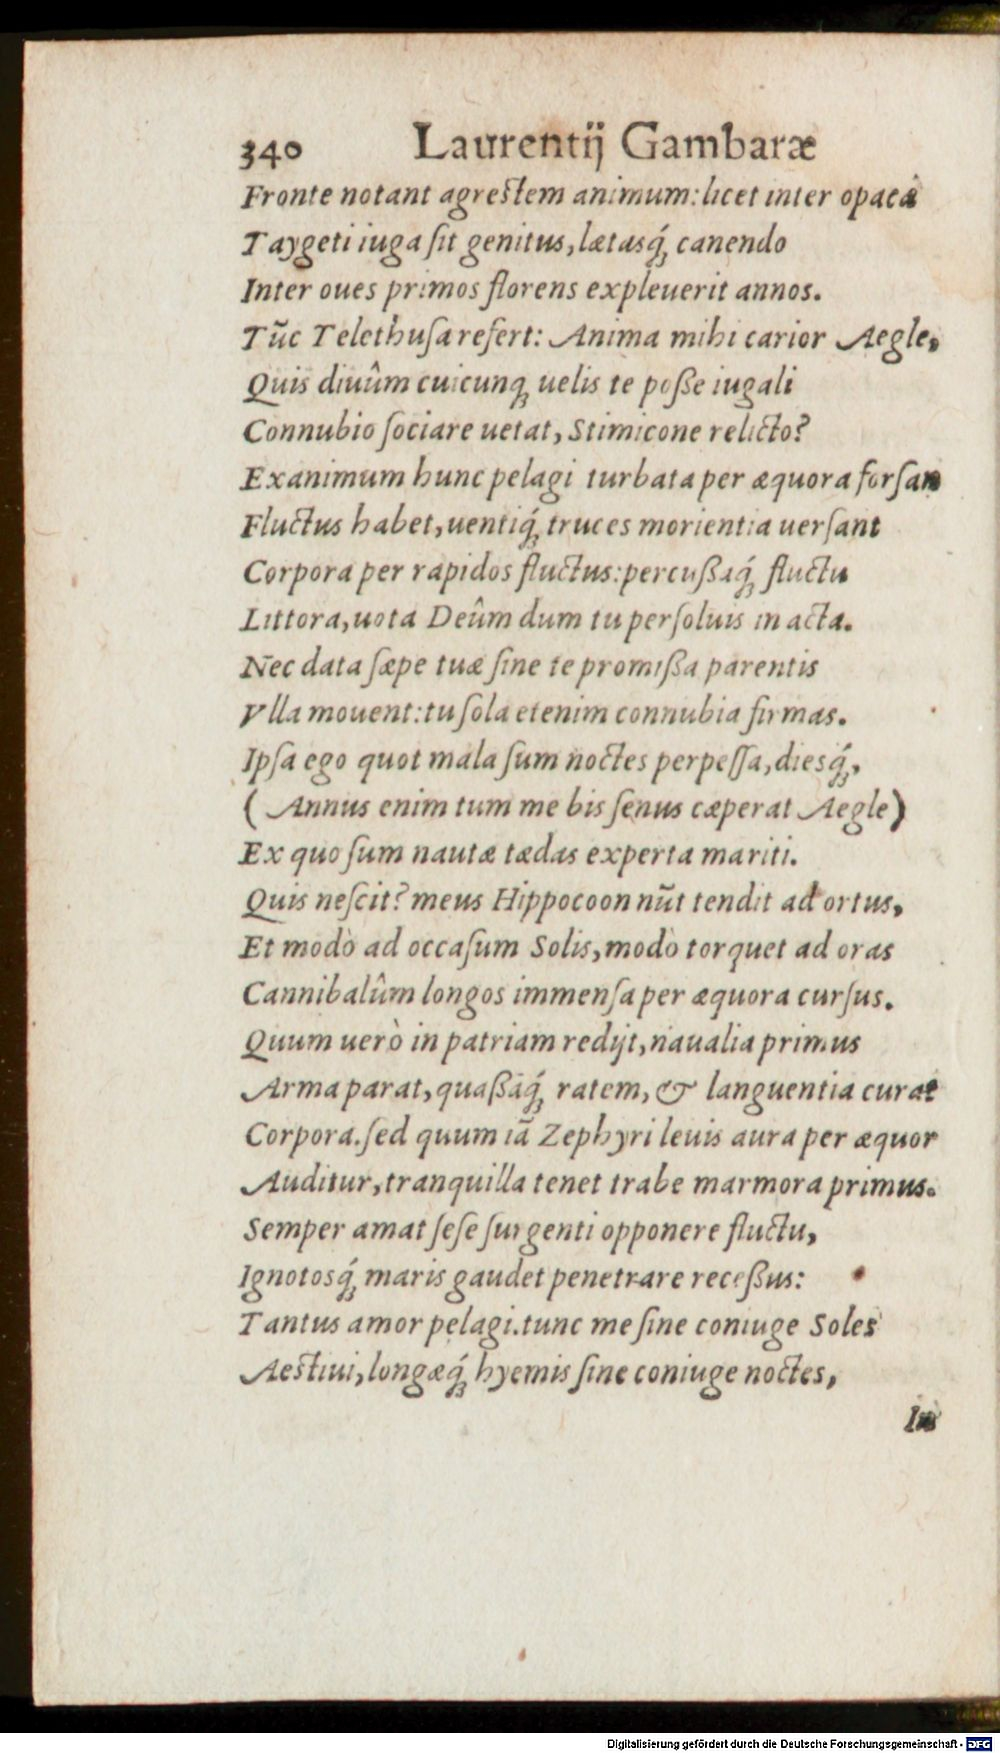 340 Laurentij Gambaræ
Fronte notant agrestem animum: licet inter opaca
Taygeti iuga ſit genitus, lætasq́; canendo
Inter oues primos florens expleuerit annos.
Tūc Telethuſa refert: Anima mihi carior Aegle,
Quis diuûm cuicunq; uelis te poße iugali
Connubio ſociare uetat, Stimicone relicto?
Exanimum hunc pelagi turbata per æquora forſan
Fluctus habet, uentiq́; truces morientia uerſant
Corpora per rapidos fluctus: percußaq́; fluctu
Littora, uota Deûm dum tu perſoluis in acta.
Nec data ſæpe tuæ ſine te promißa parentis
Vlla mouent: tu ſola etenim connubia firmas.
Ipſa ego quot mala ſum noctes perpeſſa, diesq́;,
(Annus enim tum me bis ſenus cæperat Aegle)
Ex quo ſum nautæ tædas experta mariti.
Quis neſcit? meus Hippocoon nūt tendit ad ortus,
Et modò ad occaſum Solis, modò torquet ad oras
Cannibalûm longos immenſa per æquora curſus.
Quum uerò in patriam redijt, naualia primus
Arma parat, quaßāq́; ratem, & languentia curat
Corpora. ſed quum iā Zephyri leuis aura per æquor
Auditur, tranquilla tenet trabe marmora primus.
Semper amat ſeſe ſurgenti opponere fluctu,
Ignotosq́; maris gaudet penetrare receßus:
Tantus amor pelagi. tunc me ſine coniuge Soles
Aestiui, longæq́; hyemis ſine coniuge noctes,
In
Digitalisierung gefördert durch die Deutsche Forschungsgemeinschaft - DFG